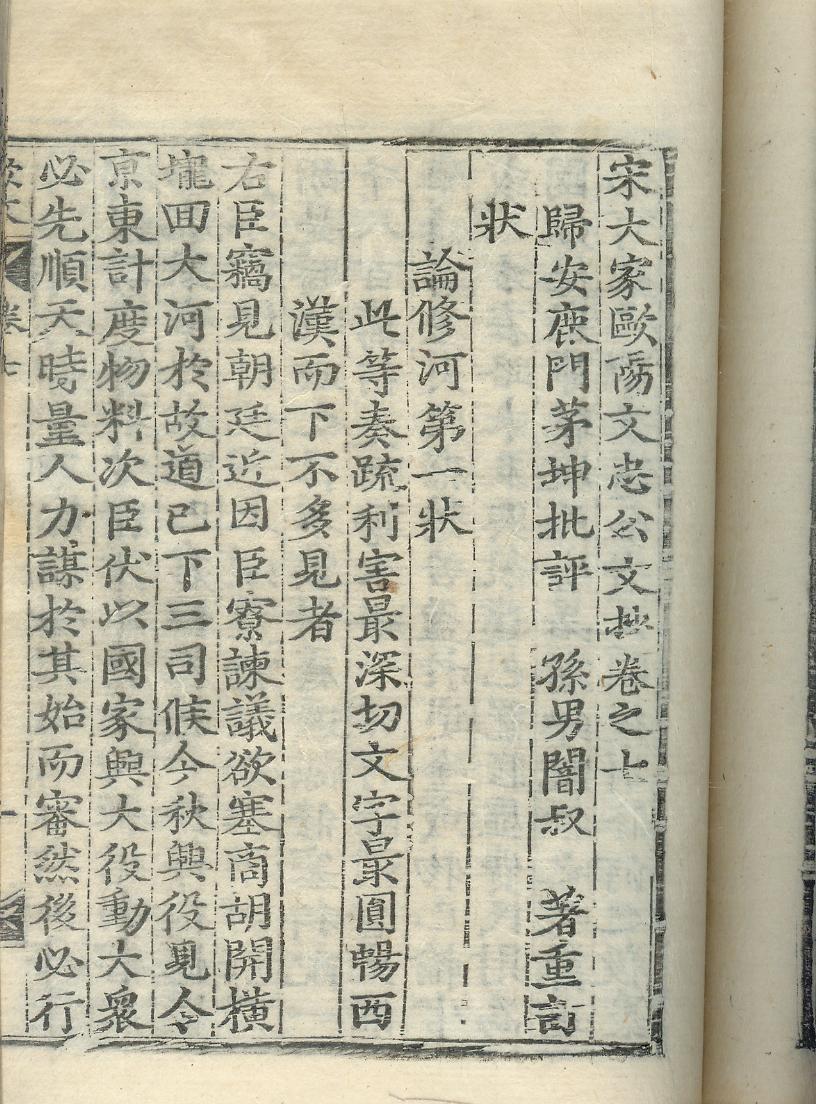 宋大家歐陽文忠公文抄卷之七
歸安鹿門茅坤批評 孫男闇叔 著重訂
狀
論修河第一狀
此等奏疏利害最深切文字最圓暢西
漢而下不多見者
右臣竊見朝廷近因臣寮諫議欲塞商胡開橫
壠回大河於故道已下三司候今秋興役見今
京東計度物料次臣伏以國家興大役動大衆
必先順天時量人力謀於其始而審然後必行
卷七